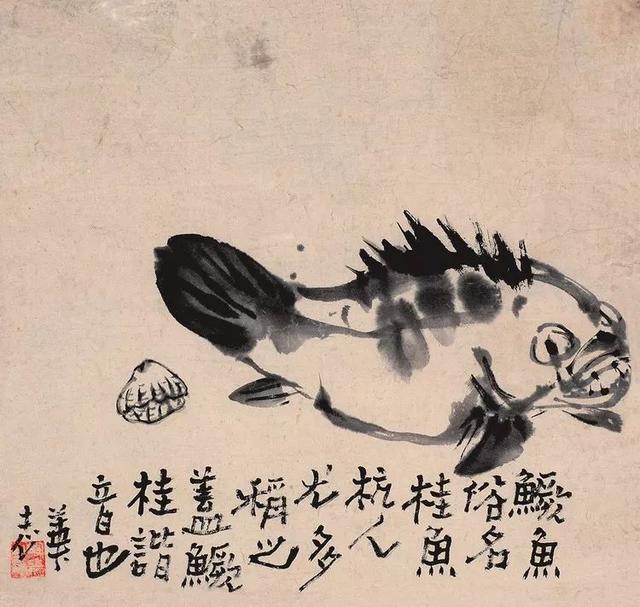 鱖魚
俗名
桂魚
杭人
尤多
稱之
蓋鱖
桂諧
音也